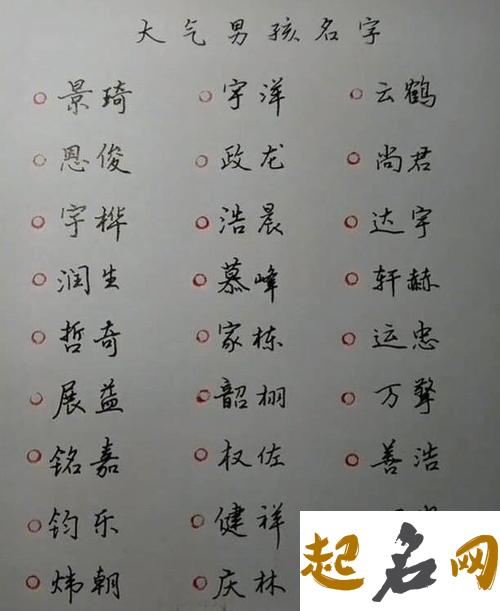 大气男孩名字
景琦 宇洋 云鹤
恩俊 政龙 尚君
宇桦 浩晨 达宇
润生 慕峰 轩赫
哲奇 家栋 运忠
展益 韶栩 万擎
铭嘉 权佐 善浩
钧乐 健祥
炜朝 庆林
起名网